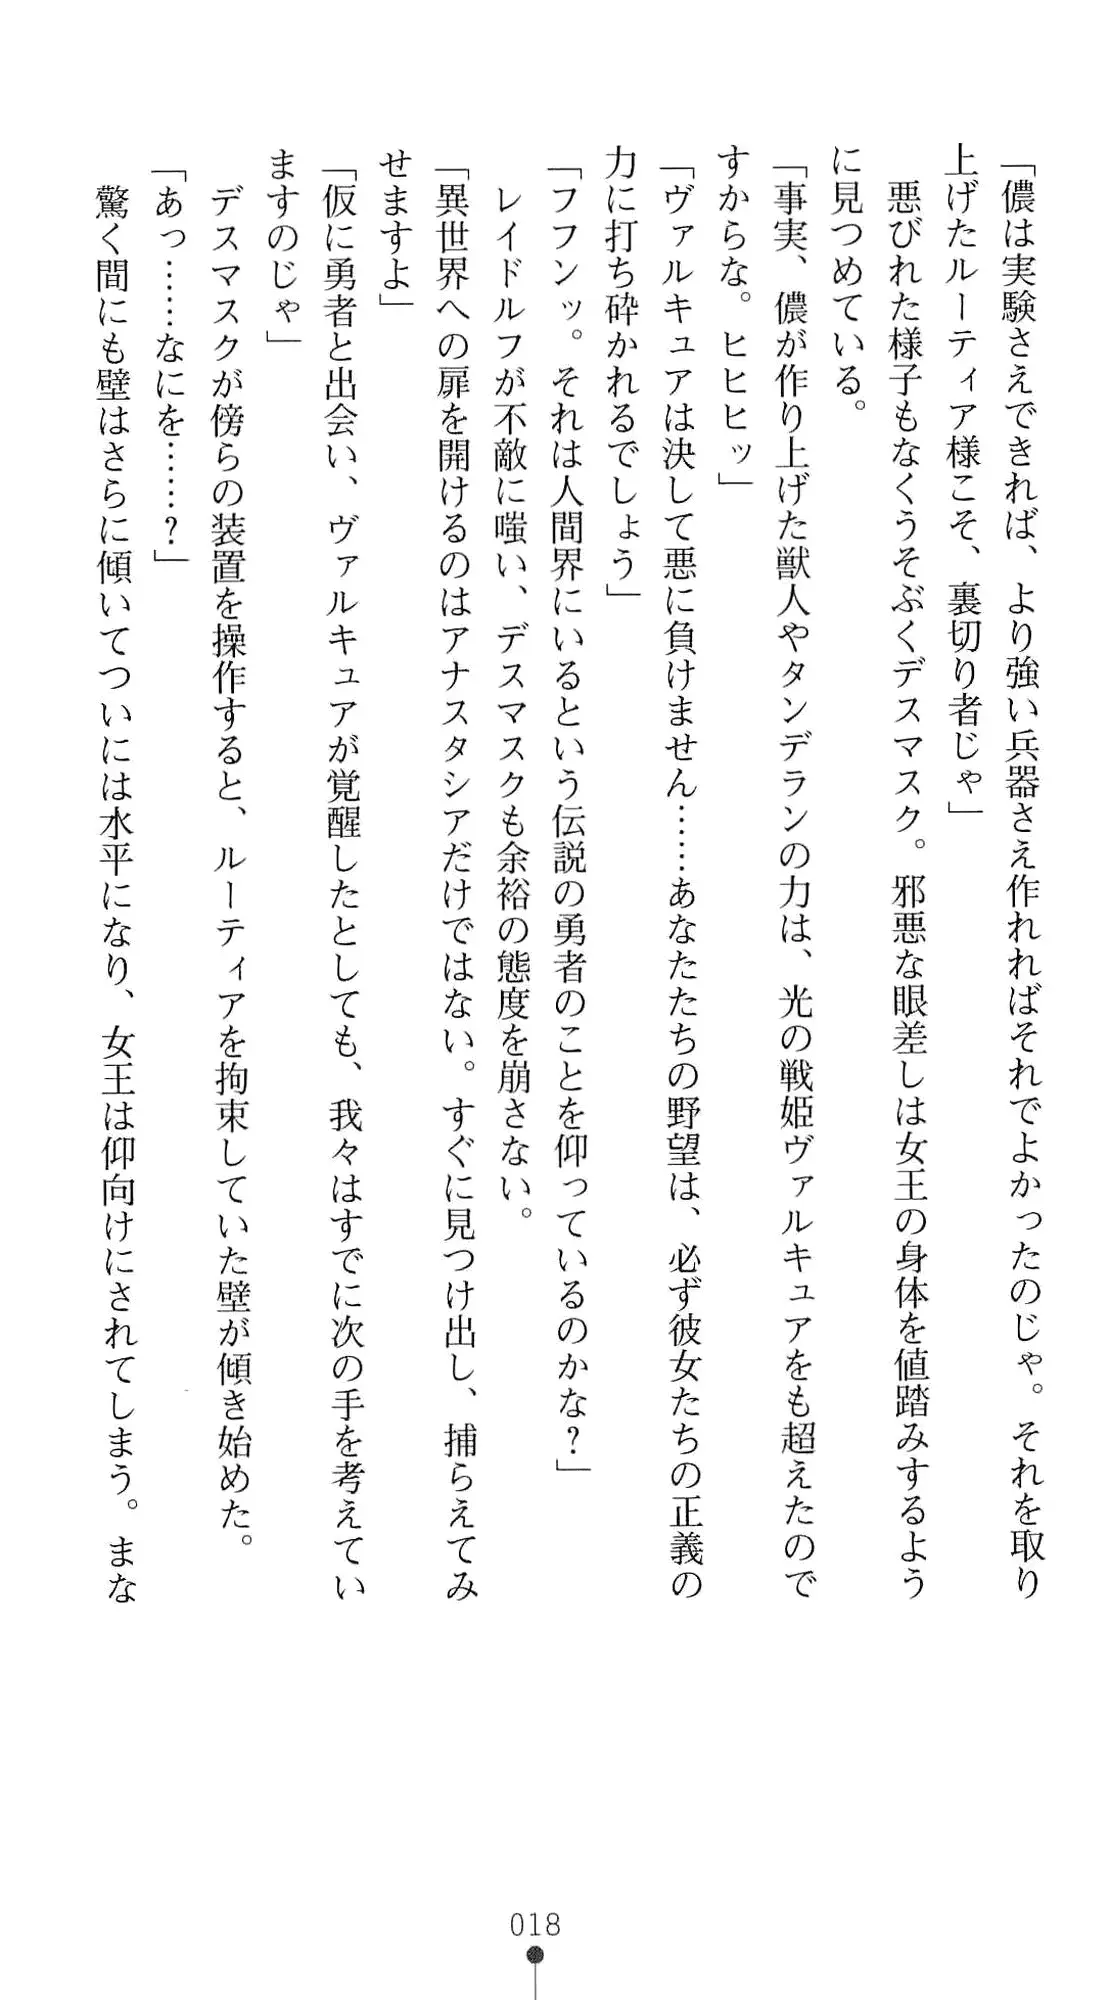 「儂は実験さえできれば、より強い兵器さえ作れればそれでよかったのじゃ。それを取り
上げたルーティア様こそ、裏切り者じゃ」
　悪びれた様子もなくうそぶくデスマスク。邪悪な眼差しは女王の身体を値踏みするよう
に見つめている。
「事実、儂が作り上げた獣人やタンデランの力は、光の戦姫ヴァルキュアをも超えたので
すからな。ヒヒヒッ」
「ヴァルキュアは決して悪に負けません……あなたたちの野望は、必ず彼女たちの正義の
力に打ち砕かれるでしょう」
「フフンッ。それは人間界にいるという伝説の勇者のことを仰っているのかな？」
　レイドルフが不敵に嗤い、デスマスクも余裕の態度を崩さない。
「異世界への扉を開けるのはアナスタシアだけではない。すぐに見つけ出し、捕らえてみ
せますよ」
「仮に勇者と出会い、ヴァルキュアが覚醒したとしても、我々はすでに次の手を考えてい
ますのじゃ」
　デスマスクが傍らの装置を操作すると、ルーティアを拘束していた壁が傾き始めた。
「あっ……なにを……？」
　驚く間にも壁はさらに傾いてついには水平になり、女王は仰向けにされてしまう。まな
018